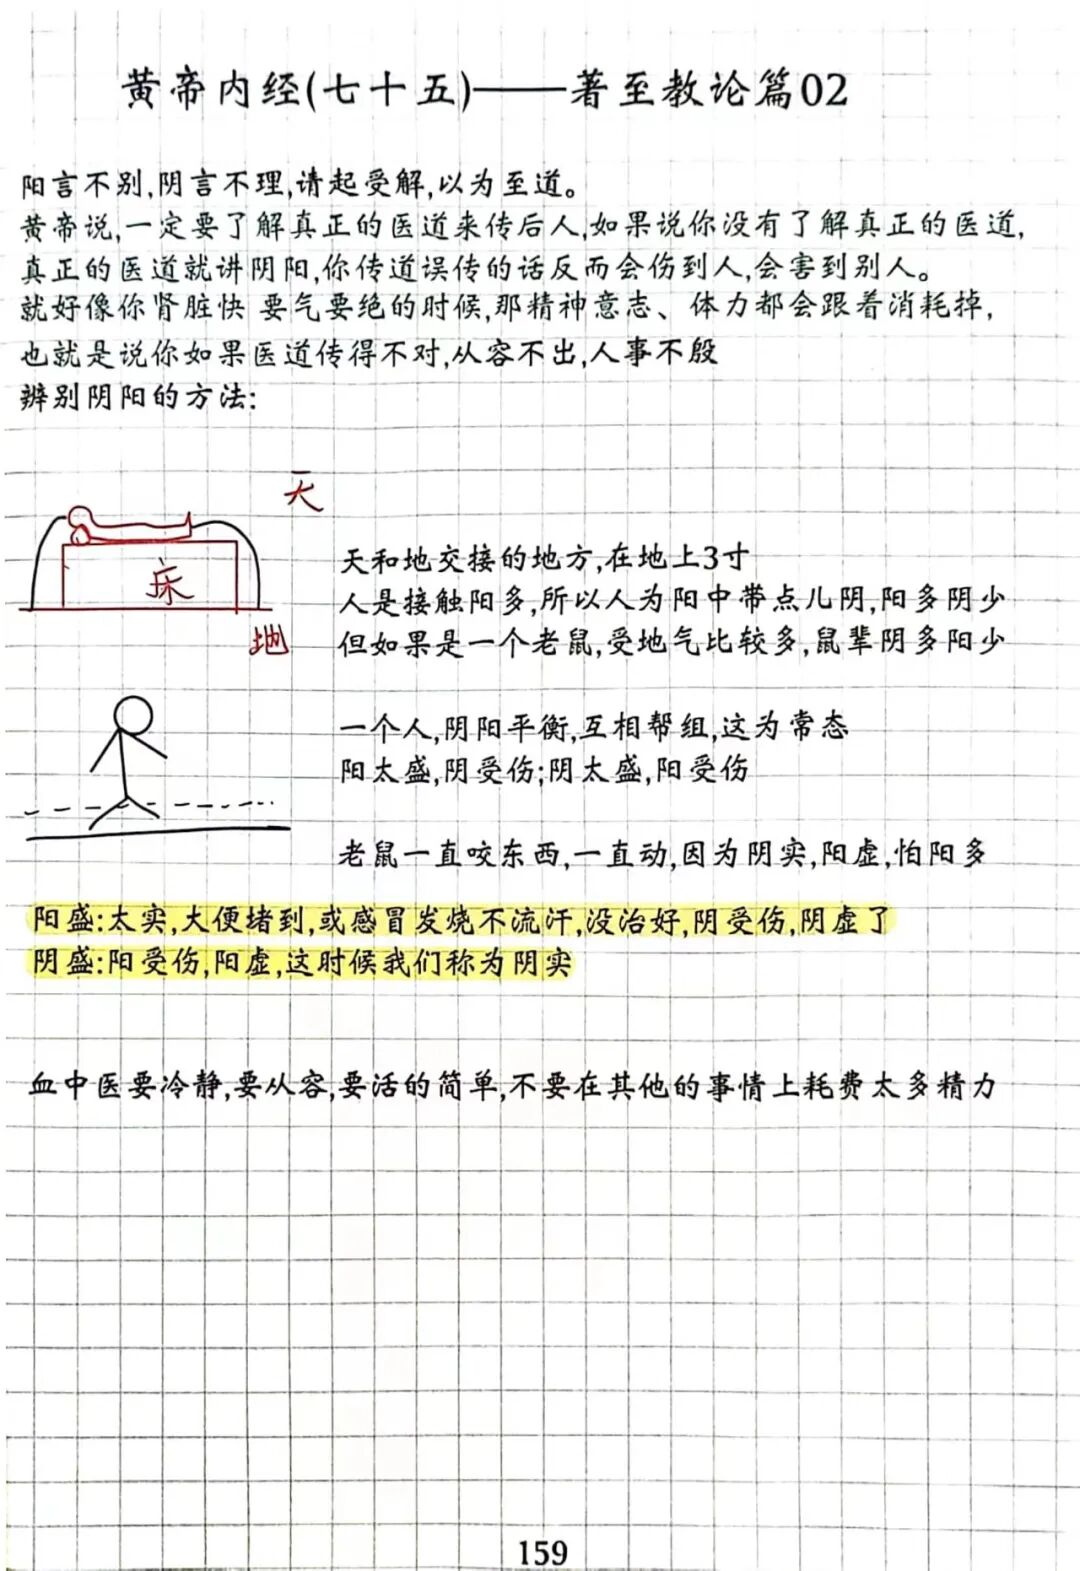 黄帝内经(七十五)——著至教论篇02
阳言不别,阴言不理,请起受解,以为至道。
黄帝说,一定要了解真正的医道来传后人,如果说你没有了解真正的医道,
真正的医道就讲阴阳,你传道误传的话反而会伤到人,会害到别人。
就好像你肾脏快 要气要绝的时候,那精神意志、体力都会跟着消耗掉,
也就是说你如果医道传得不对,从容不出,人事不殷
辨别阴阳的方法:
天
床
地
天和地交接的地方,在地上3寸
人是接触阳多,所以人为阳中带点儿阴,阳多阴少
但如果是一个老鼠,受地气比较多,鼠辈阴多阳少
一个人,阴阳平衡,互相帮组,这为常态
阳太盛,阴受伤;阴太盛,阳受伤
老鼠一直咬东西,一直动,因为阴实,阳虚,怕阳多
阳盛:太实,大便堵到,或感冒发烧不流汗,没治好,阴受伤,阴虚了
阴盛:阳受伤,阳虚,这时候我们称为阴实
血中医要冷静,要从容,要活的简单,不要在其他的事情上耗费太多精力
159